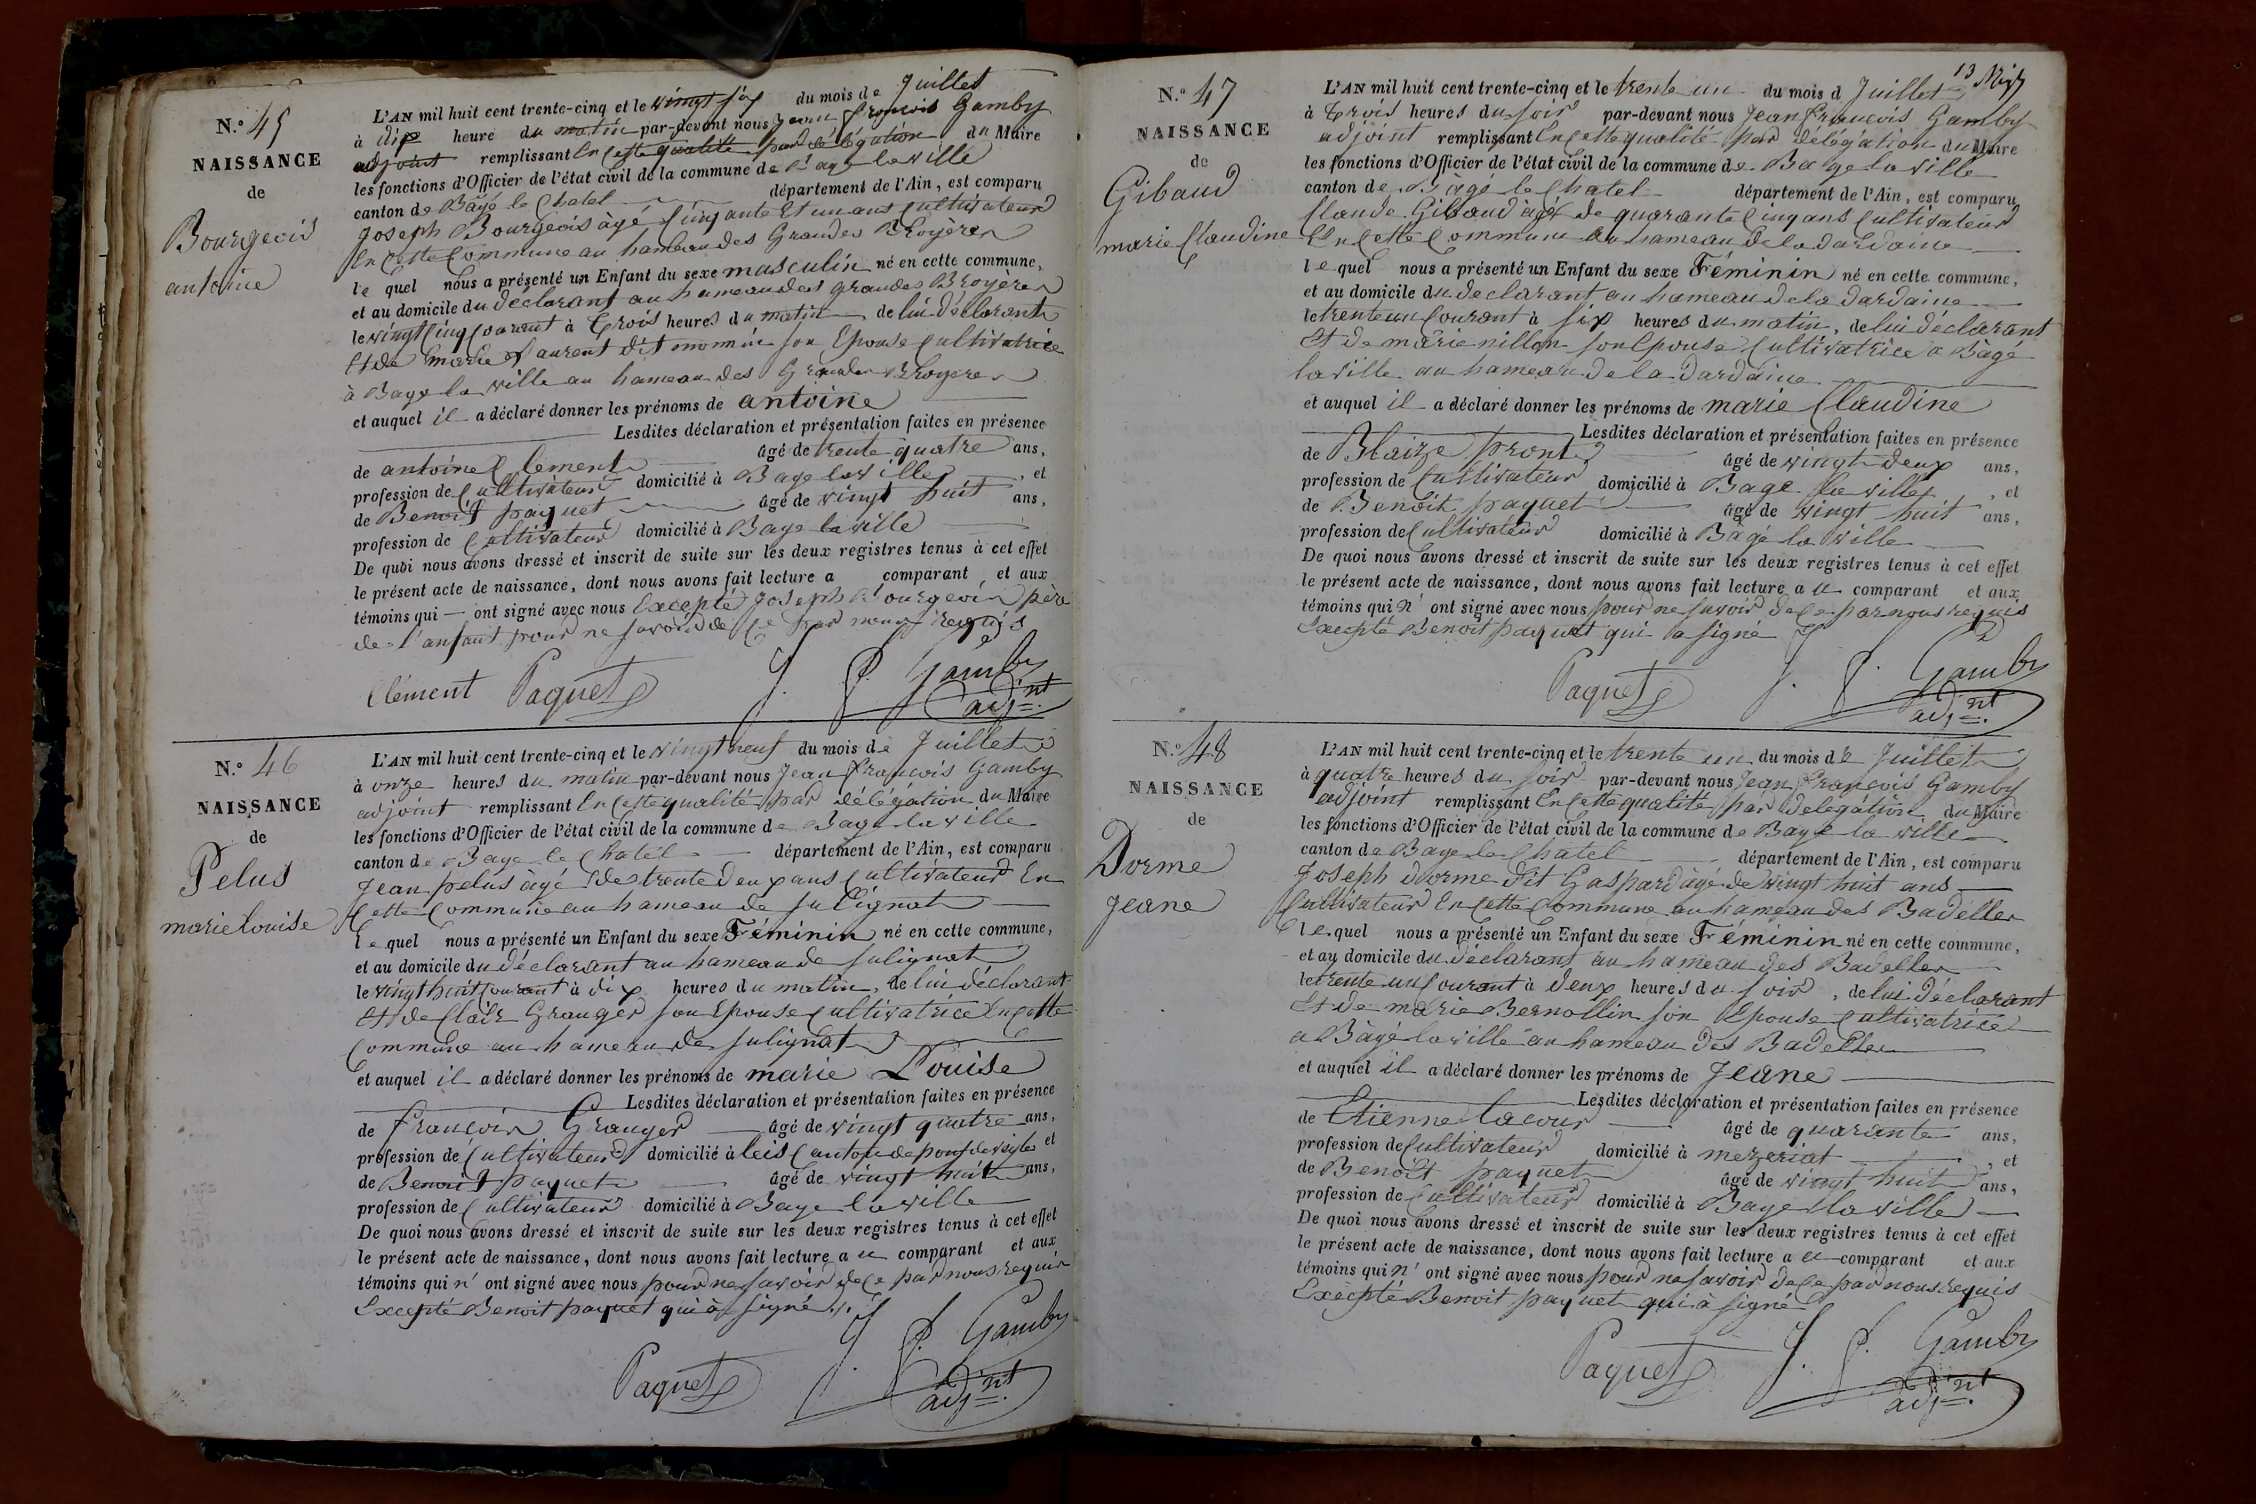 N.º 45
NAISSANCE
de
Bourgeois
antoine
L'AN mil huit cent trente-cinq et le vingt six du mois de Juillet
à dix heure du matin par-devant nous Jean françois Gamby
adjoint remplissant en cette qualité par délégation du Maire
les fonctions d'Officier de l'état civil de la commune de Bagé la ville
canton de Bâgé le Chatel département de l'Ain, est comparu
Joseph Bourgeois âgé Cinquante et un ans Cultivateur
en cette Commune au hameau des Grandes Broyères
le quel nous a présenté un Enfant du sexe masculin né en cette commune,
et au domicile du déclarant au hameau des grandes Broyères
le vingt Cinq Courant à trois heures du matin de lui déclarant
et de marie Laurent dit monnin son Epouse Cultivatrice
à Bage la ville au hameau des Grandes Broyeres
et auquel il a déclaré donner les prénoms de antoine
Lesdites déclaration et présentation faites en présence
de antoine Clement âgé de trente quatre ans,
profession de Cultivateur domicilié à Bage la ville, et
de Benoit paquet âgé de vingt huit ans,
profession de Cultivateur domicilié à Bage la ville
De quoi nous avons dressé et inscrit de suite sur les deux registres tenus à cet effet
le présent acte de naissance, dont nous avons fait lecture a comparant, et aux
témoins qui — ont signé avec nous Excepté Joseph Bourgeois père
de l'anfant pour ne savoir de Ce par nous requis
Clément Paquet J. F. Gamby
adj.nt
N.º 46
NAISSANCE
de
Pelus
marie Louise
L'AN mil huit cent trente-cinq et le vingt neuf du mois de Juillet
à onze heures du matin par-devant nous Jean François Gamby
adjoint remplissant En Cette qualité par délégation du Maire
les fonctions d'Officier de l'état civil de la commune de Bage la ville
canton de Bage le Chatel département de l'Ain, est comparu
Jean pelus âgé de trente deux ans Cultivateur En
Cette Commune au hameau de Sulignat
le quel nous a présenté un Enfant du sexe Féminin né en cette commune,
et au domicile du déclarant au hameau de Sulignat
le vingt huit Courant à dix heures du matin, de lui déclarant
et de Clair Granger son Epouse Cultivatrice En cette
Commune au hameau de Sulignat
et auquel il a déclaré donner les prénoms de marie Louise
Lesdites déclaration et présentation faites en présence
de François Granger âgé de vingt quatre ans,
profession de Cultivateur domicilié à leis Canton de pont de veyle et
de Benoit paquet âgé de vingt huit ans,
profession de Cultivateur domicilié à Bage la ville
De quoi nous avons dressé et inscrit de suite sur les deux registres tenus à cet effet
le présent acte de naissance, dont nous avons fait lecture a u comparant et aux
témoins qui n' ont signé avec nous pour ne savoir de Ce par nous requis
Excepté Benoit paquet qui à signé
Paquet J. F. Gamby
adj.nt
N.º 47
NAISSANCE
de
Gibaud
marie Claudine
L'AN mil huit cent trente-cinq et le trente un du mois d Juillet
à trois heures du soir par-devant nous Jean François Gamby
adjoint remplissant En Cette qualité par délégation du Maire
les fonctions d'Officier de l'état civil de la commune de Bage la ville
canton de Bâgé le Chatel département de l'Ain, est comparu
Claude Gibaud âgé de quarante Cinq ans Cultivateur
En Cette Commune au hameau de la dardaine
le quel nous a présenté un Enfant du sexe Féminin né en cette commune,
et au domicile du declarant au hameau de la dardaine
le trente un Courant à six heures du matin, de lui déclarant
et de marie nillon son Epouse Cultivatrice a Bâgé
la ville au hameau de la dardaine
et auquel il a déclaré donner les prénoms de marie Claudine
Lesdites déclaration et présentation faites en présence
de Blaize pront âgé de vingt deux ans,
profession de Cultivateur domicilié à Bagé la ville, et
de Benoit paquet âgé de vingt huit ans,
profession de Cultivateur domicilié à Bagé la ville
De quoi nous avons dressé et inscrit de suite sur les deux registres tenus à cet effet
le présent acte de naissance, dont nous avons fait lecture a u comparant et aux
témoins qui n' ont signé avec nous pour ne savoir de Ce par nous requis
Excepté Benoit paquet qui a signé
Paquet J. F. Gamby
adj.nt
N.º 48
NAISSANCE
de
Dorme
Jeane
L'AN mil huit cent trente-cinq et le trente un du mois de Juillet
à quatre heures du soir par-devant nous Jean François Gamby
adjoint remplissant En Cette qualité par delegation du Maire
les fonctions d'Officier de l'état civil de la commune de Bagé la ville
canton de Bage le Chatel département de l'Ain, est comparu
Joseph dorme dit Gaspard âgé de vingt huit ans
Cultivateur En Cette Commune au hameau des Badelles
le quel nous a présenté un Enfant du sexe Féminin né en cette commune,
et au domicile du déclarant au hameau des Badelles
le trente un Courant à deux heures du soir, de lui déclarant
Et de marie Bernollin son Epouse Cultivatrice
a Bâgé la ville au hameau des Badelles
et auquel il a déclaré donner les prénoms de Jeane
Lesdites déclaration et présentation faites en présence
de Etienne lacour âgé de quarante ans,
profession de Cultivateur domicilié à mezeriat, et
de Benoit paquet âgé de vingt huit ans,
profession de Cultivateur domicilié à Bage la ville
De quoi nous avons dressé et inscrit de suite sur les deux registres tenus à cet effet
le présent acte de naissance, dont nous avons fait lecture a u comparant et aux
témoins qui n' ont signé avec nous pour ne savoir de Ce par nous requis
Excepté Benoit paquet qui à signé
Paquet J. F. Gamby
adj.nt